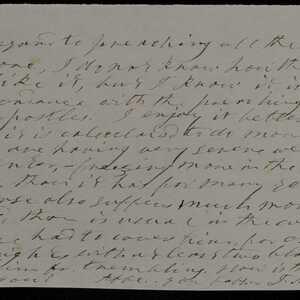 regard to preaching all the
one, I do not know how th
like it, but I know it is
ordiance with the preaching
apostles. I enjoy it better
it is calculated to do mor
are having very severe we
inter, - freezing more in the
than it has for many ye
also suffers much mor
than is usual in the
had to cover him, for
with at least two bl
him for trembling. Now is
you?